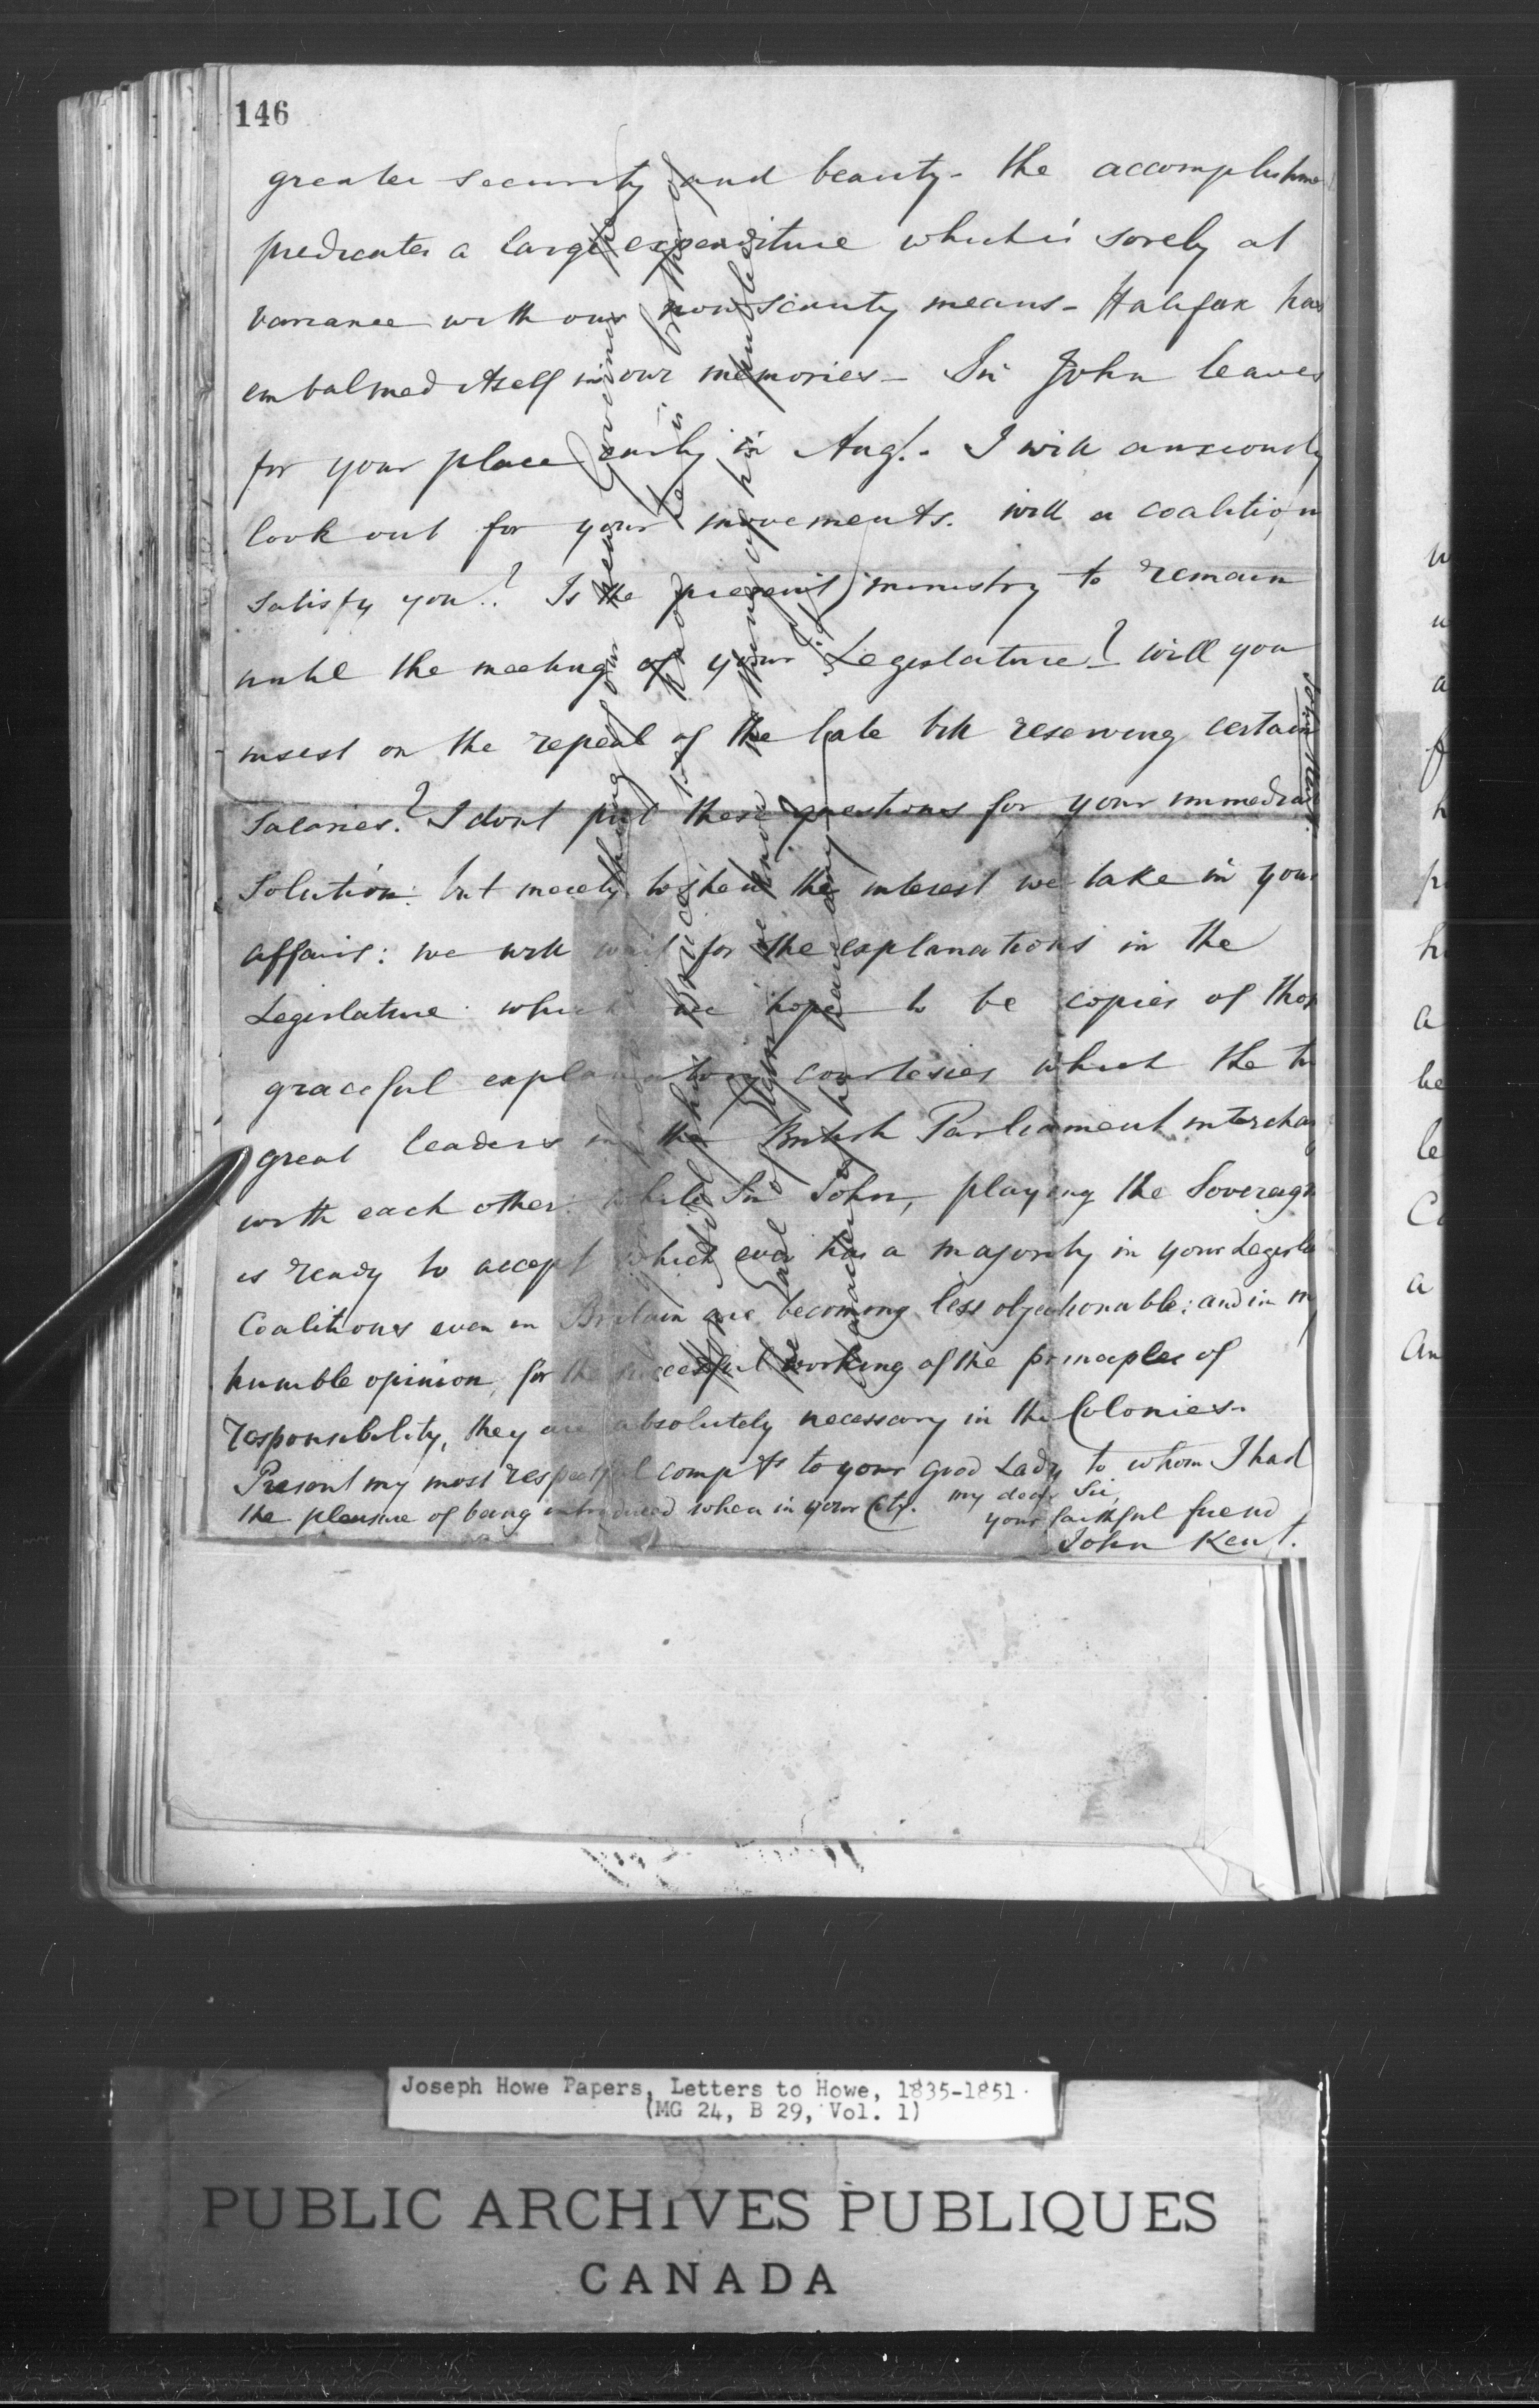 146
greater security and beauty - the accomplishme
predicates a large expenditure which is sorely at
variance with our now scanty means - Halifax has
embalmed itself in our memories - Sir John leaves
for your place early in Augt. - I will anxiously
look out for your movements. will a coalition
satisfy you? Is the present ministry to remain
until the meeting of your Legislature? will you
insist on the repeal of the late bill reserving certain
salaries? I dont put these questions for your immediate
solution: but merely to shew the interest we take in your
affairs: we will wait for the explanations in the
Legislature which we hope to be copies of those
graceful explanatory courtesies which the tw
great leaders in the British Parliament interchan
with each other: while Sir John, playing the Sovereign
is ready to accept which ever has a majority in your Legisla
Coalitions even in Britain are becoming less objectionable: and in my
humble opinion, for the successful working of the principles of
responsibility, they are absolutely necessary in the Colonies.
Present my most respectful compts to your good Lady to whom I had
the pleasure of being introduced when in your City. my dear Sir,
your faithful friend
John Kent.
thing of our new Governor
Sir Gaspard he is brother of
we know nothing of his public
character
Joseph Howe Papers, Letters to Howe, 1835-1851.
(MG 24, B 29, Vol. 1)
PUBLIC ARCHIVES PUBLIQUES
CANADA